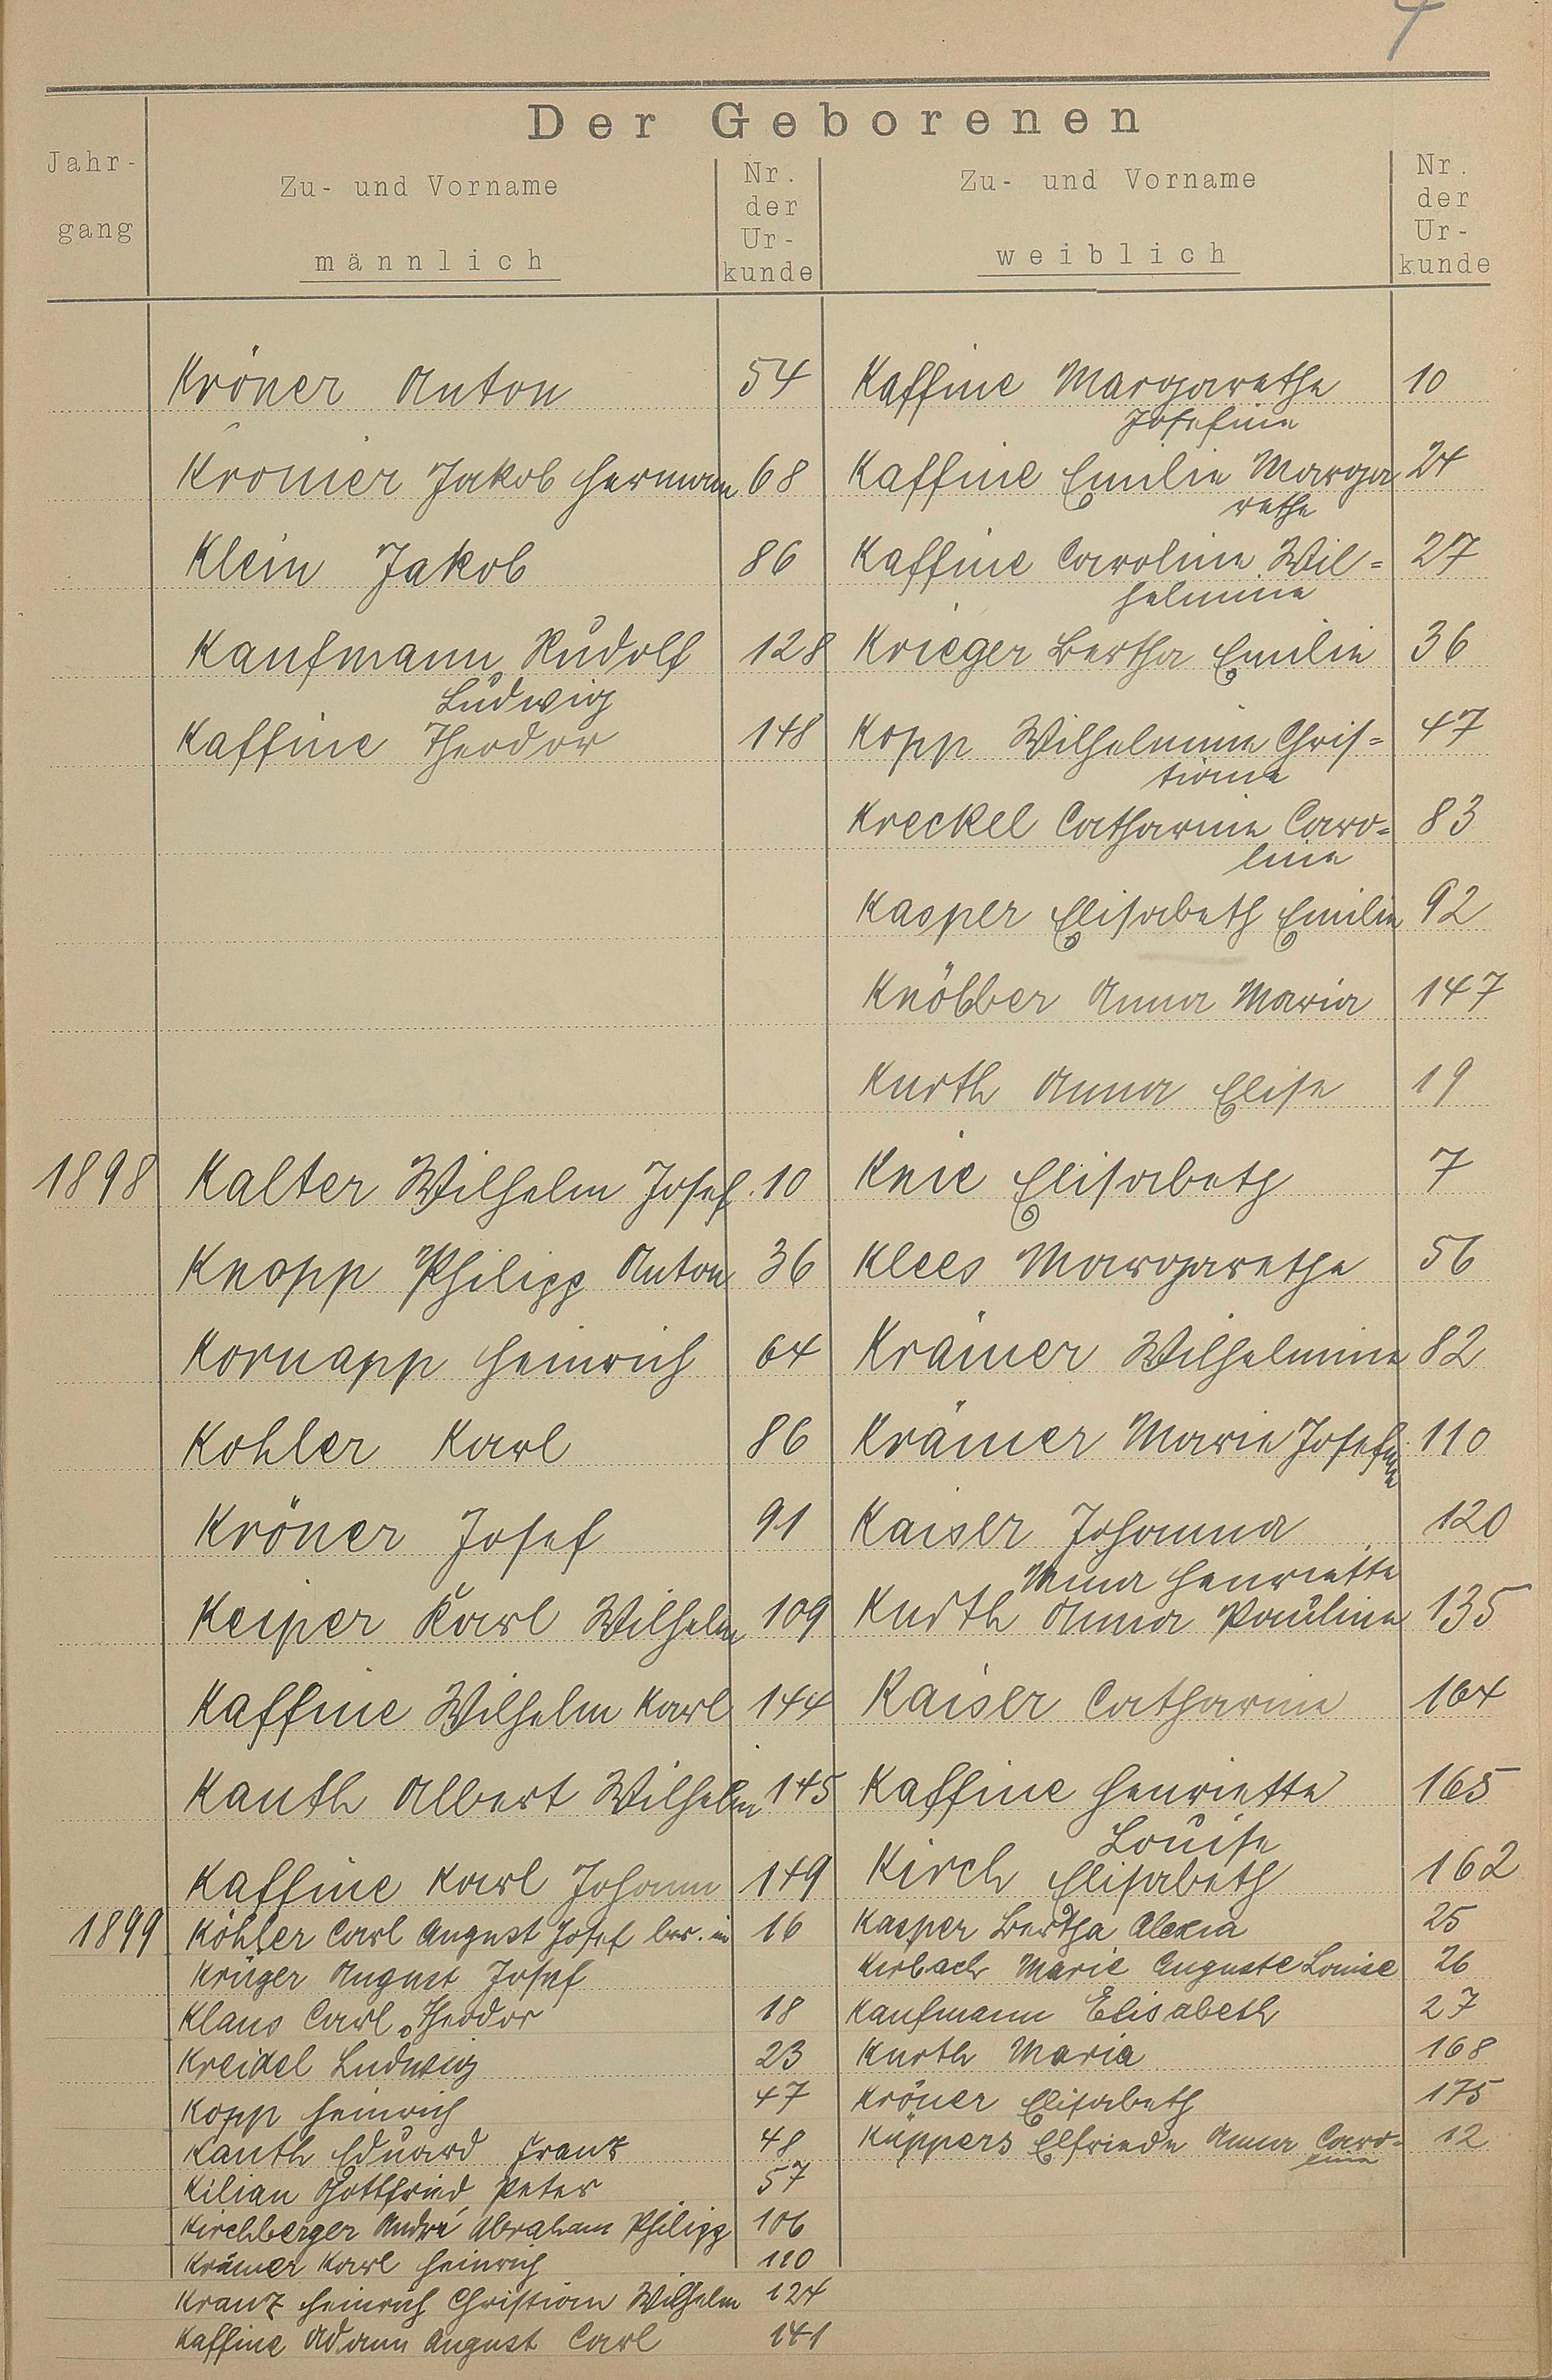 4
Der Geborenen
Jahr-
gang
Zu- und Vorname
männlich
Nr.
der
Ur-
kunde
Zu- und Vorname
weiblich
Nr.
der
Ur-
kunde
Kröner Anton 54 Kaffine Margarethe 10
Josefine
Kronier Jakob Hermann 68 Kaffine Emilie Marga 24
rethe
Klein Jakob 86 Kaffine Caroline Wil= 27
helmine
Kaufmann Rudolf 128 Krieger Bertha Emilie 36
Ludwig
Kaffine Theodor 148 Kopp Wilhelmine Chris= 47
tiana
Kreckel Catharine Caro= 83
line
Kasper Elisabeth Emilie 92
Knöbber Anna Maria 147
Kurth Anna Elise 19
1898 Kalter Wilhelm Josef. 10 Knie Elisabeth 7
Knopp Philipp Anton 36 Klees Margarethe 56
Kornapp Heinrich 64 Krämer Wilhelmine 82
Kohler Karl 86 Krämer Marie Josefine 110
Kröner Josef 91 Kaiser Johanna 120
Henriette
Keiper Karl Wilhelm 109 Kurth Anna Pauline 135
Kaffine Wilhelm Karl 144 Kaiser Catharine 164
Kanth Albert Wilhelm 145 Kaffine Henriette 165
Louise
Kaffine Karl Johann 149 Kirch Elisabeth 162
1899 Köhler Carl August Josef 16 Kasper Bertha Alexia 25
Krüger August Josef Kirbach Marie Auguste Louise 26
Klaus Carl Theodor 18 Kaufmann Elisabeth 27
Kreidel Ludwig 23 Kurth Maria 168
Kopp Heinrich 47 Kröner Elisabeth 175
Kanth Eduard Franz 48 Küppers Elfriede Anna Caro- 12
line
Kilian Gottfried Peter 57
Kirchberger André Abraham Philipp 106
Krämer Karl Heinrich 110
Kranz Heinrich Christian Wilhelm 124
Kaffine Adam August Carl 141